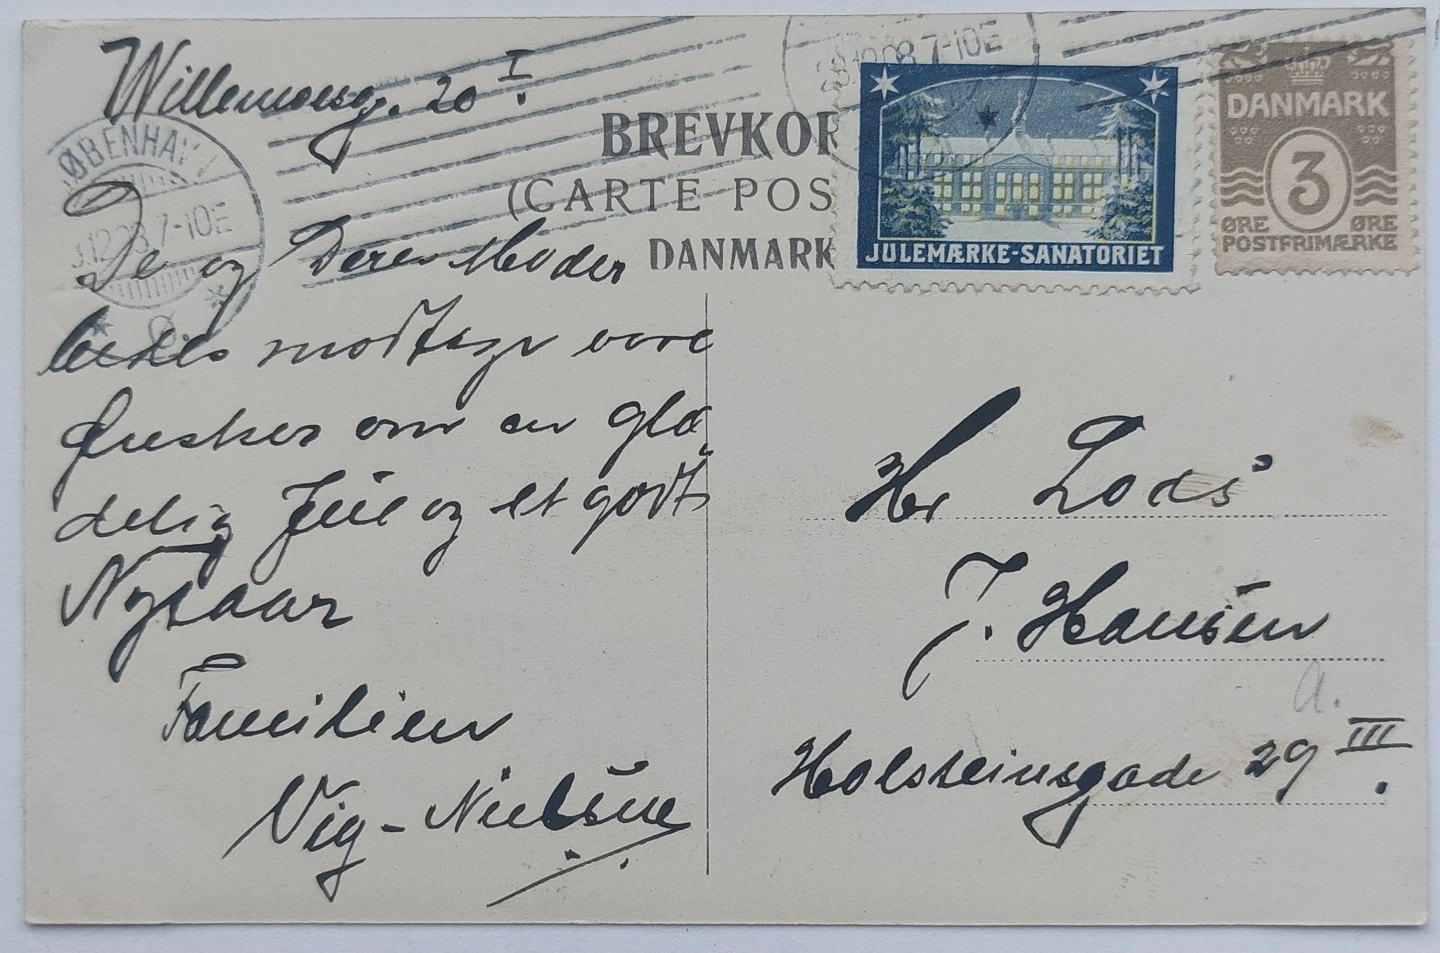 Willemoesg. 20 I.
BREVKOR
(CARTE POS
DANMARK
KØBENHAVN
23.12.08. 7-10E
Ø.
23.12.08 7-10E
JULEMÆRKE-SANATORIET
DANMARK
3
ØRE ØRE
POSTFRIMÆRKE
De og Deres Moder
bedes modtage vore
Ønsker om en glæ-
delig Jul og et godt
Nytaar
Familien
Vig-Nielsen
Hr Lods
J. Hansen
a.
Holsteinsgade 29 III.